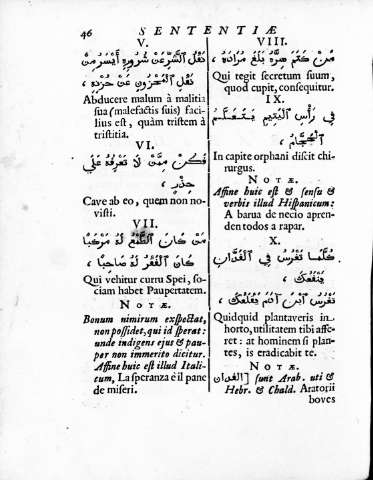 46
SENTENTIÆ
V.
نقل الشر عن شروره أيسر من
نقل المحزون عن حزنه
Abducere malum à malitia
sua (malefactis suis) faci-
lius est, quàm tristem à
tristitia.
VI.
كن ممن لا تعرفه علي
حذر
Cave ab eo, quem non no-
visti.
VII.
من كان الطمع له مركبا
كان الفقر له صاحبا
Qui vehitur curru Spei, so-
ciam habet Paupertatem.
NOTÆ.
Bonum nimirum exspectat,
non possidet, qui id sperat:
unde indigens ejus & pau-
per non immerito dicitur.
Affine huic est illud Itali-
cum, La speranza è il pane
de miseri.
VIII.
من كتم سره بلغ مراده
Qui tegit secretum suum,
quod cupit, consequitur.
IX.
في رأس اليتيم يتعلم
الحجام
In capite orphani discit chi-
rurgus.
NOTÆ.
Affine huic est & sensu &
verbis illud Hispanicum:
A barua de necio apren-
den todos a rapar.
X.
كلما تغرس في الفدان
ينفعك
تغرس ابن آدم يقلعك
Quidquid plantaveris in
horto, utilitatem tibi affe-
ret: at hominem si plan-
tes, is eradicabit te.
NOTÆ.
الفدان] sunt Arab. uti &
Hebr. & Chald. Aratorii
boves